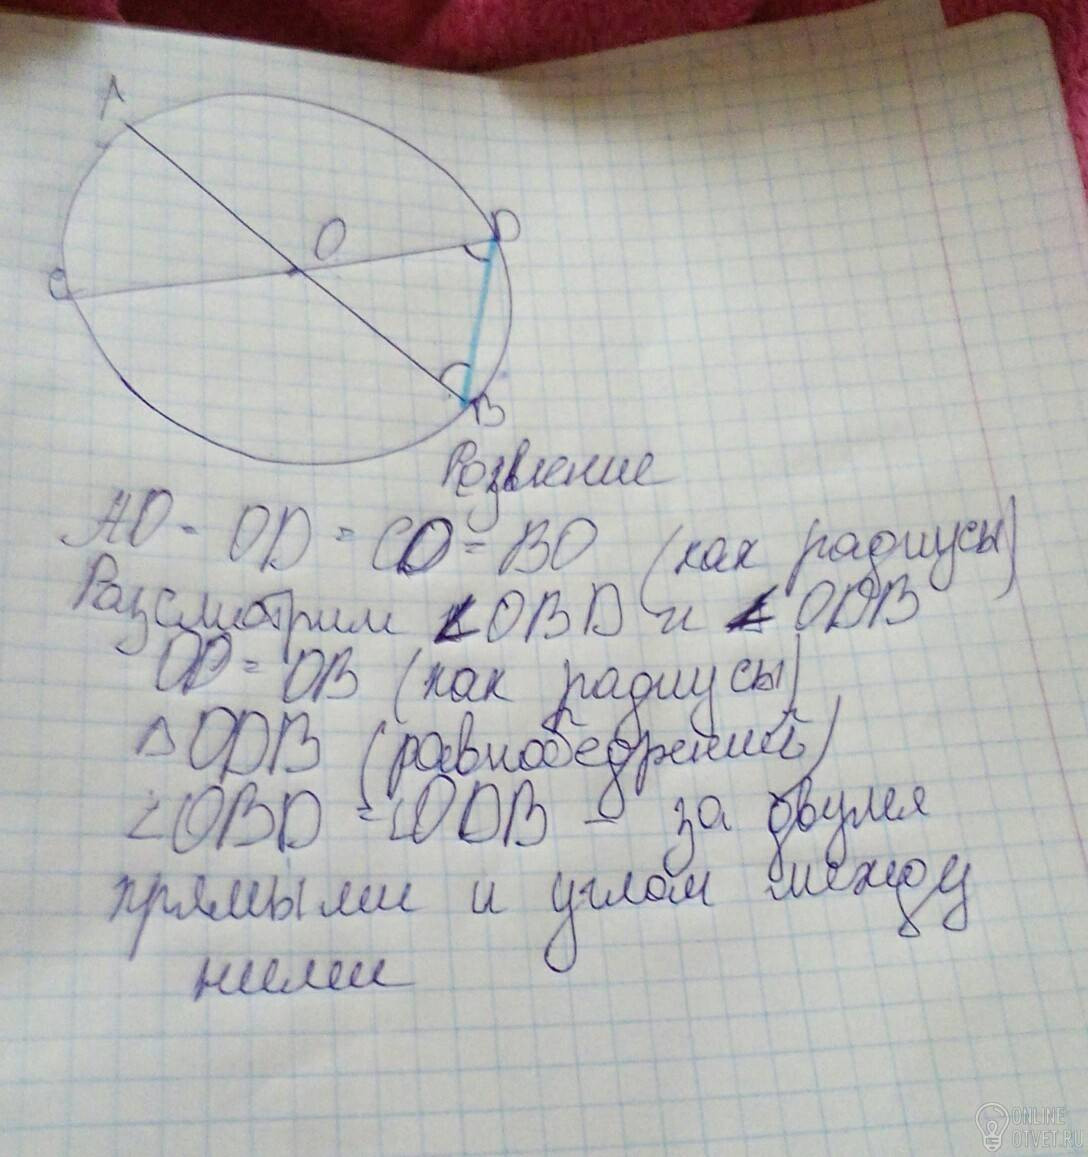 A
O
D
C
B
Розвление
AO = OD = CO = BO (как радиусы)
Розсмотрим ∠OBD и ∠ODB
OD = OB (как радиусы)
Δ ODB (равнобедрений)
∠OBD = ∠ODB - за двумя
прямыми и углом между
ними
ONLINE
OTVET.RU